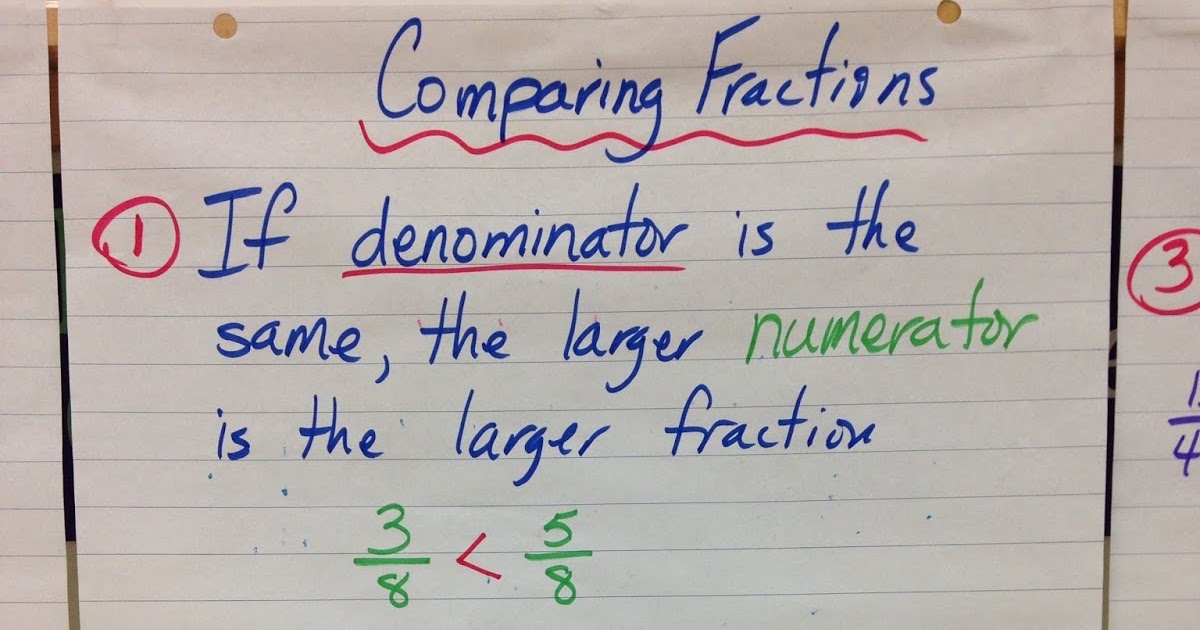 Comparing Fractions
1 If denominator is the
same, the larger numerator
is the larger fraction
3/8 < 5/8
3
1
4